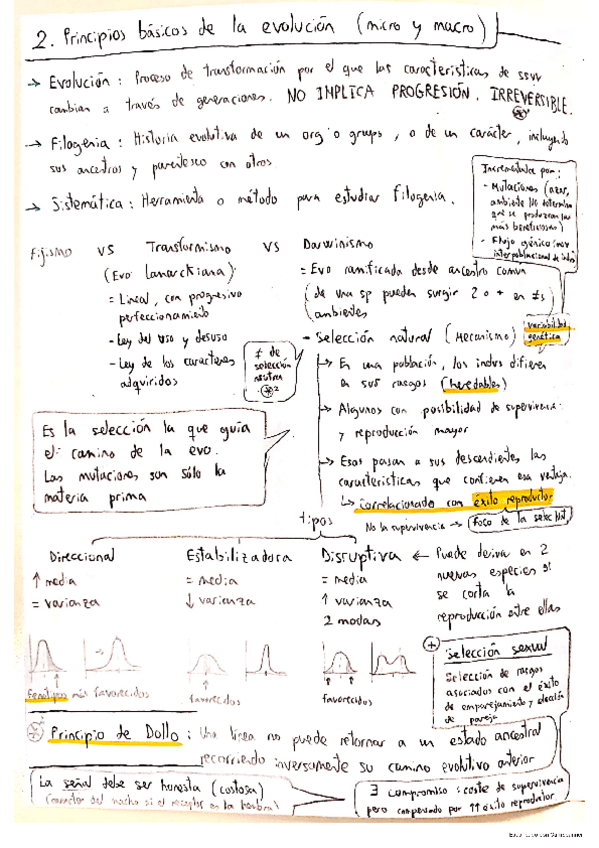 2. Principios básicos de la evolución (micro y macro)
→ Evolución: Proceso de transformación por el que las características de ssvv
cambian a través de generaciones. NO IMPLICA PROGRESIÓN. IRREVERSIBLE.
→ Filogenia: Historia evolutiva de un org o grupo, o de un carácter, incluyendo
sus ancestros y parentesco con otros
→ Sistemática: Herramienta o método para estudiar filogenia.
Incrementada por:
- Mutaciones (azar,
ambiente NO determina
que se produzcan las
más beneficiosas)
- Flujo génico
interpoblacional de indvs
variabilidad
genética
Fijismo VS Transformismo VS Darwinismo
(Evo Lamarckiana):
= Lineal, con progresivo
perfeccionamiento
- Ley del uso y desuso
- Ley de los caracteres
adquiridos
= Evo ramificada desde ancestro común
(de una sp pueden surgir 2 o + en ≠s
ambientes
- Selección natural (Mecanismo)
≠ de
selección
neutra
*2
→ En una población, los indvs difieren
en sus rasgos (heredables)
→ Algunos con posibilidad de supervivencia
y reproducción mayor
→ Esos pasan a sus descendientes las
características que contienen esa ventaja.
↳ Correlacionado con éxito reproductor
No la supervivencia → foco de la selec Nat.
Es la selección la que guía
el camino de la evo.
Las mutaciones son sólo la
materia prima
tipos
Direccional
↑ media
= varianza
Fenotipos más favorecidos
Estabilizadora
= media
↓ varianza
favorecidos
Disruptiva
= media
↑ varianza
2 modas
favorecidos
← Puede deriva en 2
nuevas especies si
se corta la
reproducción entre ellas
+ Selección sexual
Selección de rasgos
asociados con el éxito
de emparejamiento y elección
de pareja
* Principio de Dollo: Una línea no puede retornar a un estado ancestral
recorriendo inversamente su camino evolutivo anterior
La señal debe ser honesta (costosa)
(carácter del macho si el receptor es la hembra)
∃ compromiso: coste de supervivencia
pero compensado por ↑↑ éxito reproductor